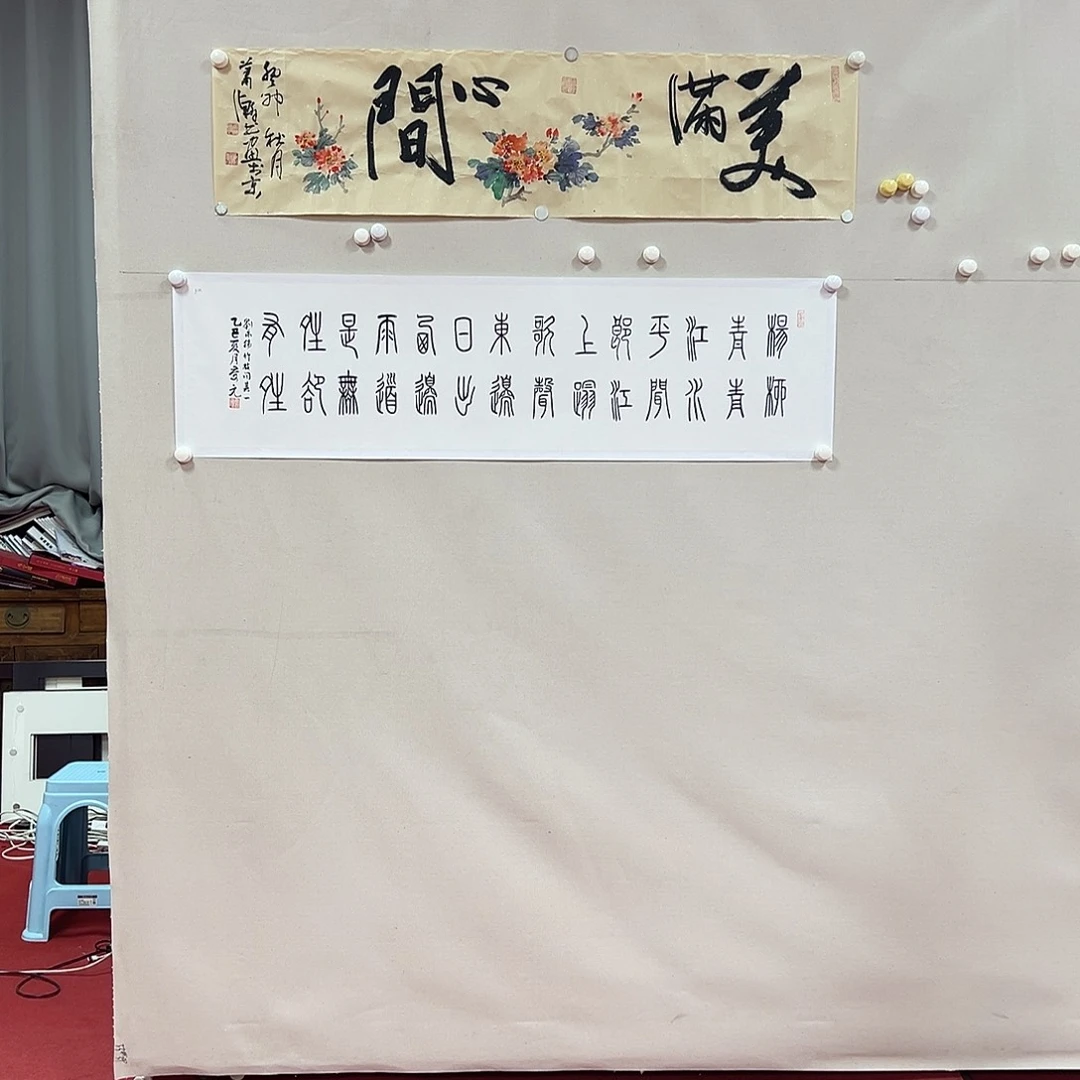 美滿心間
癸卯秋月
楊柳
青青
江水
平聞
郎江
上蹋
歌聲
東邊
日出
西邊
雨道
是無
晴卻
有晴
劉禹錫竹枝詞其一
乙巳夏月